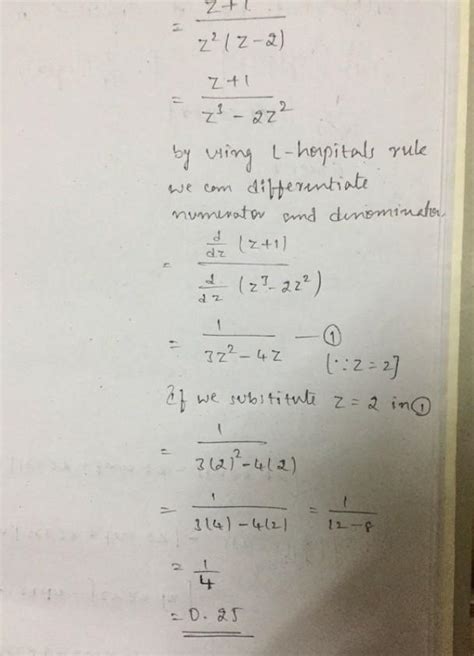 z+1
= ─────
z²(z-2)
z+1
= ─────
z³ - 2z²
by using L-hospitals rule
we can differentiate
numerator and denominator.
d/dz (z+1)
= ─────
d/dz (z³-2z²)
= 1/(3z²-4z) — ①
[∵z=2]
If we substitute z = 2 in ①
= 1/(3(2)²-4(2))
= 1/(3(4)-4(2)) = 1/(12-8)
= 1/4
= 0.25